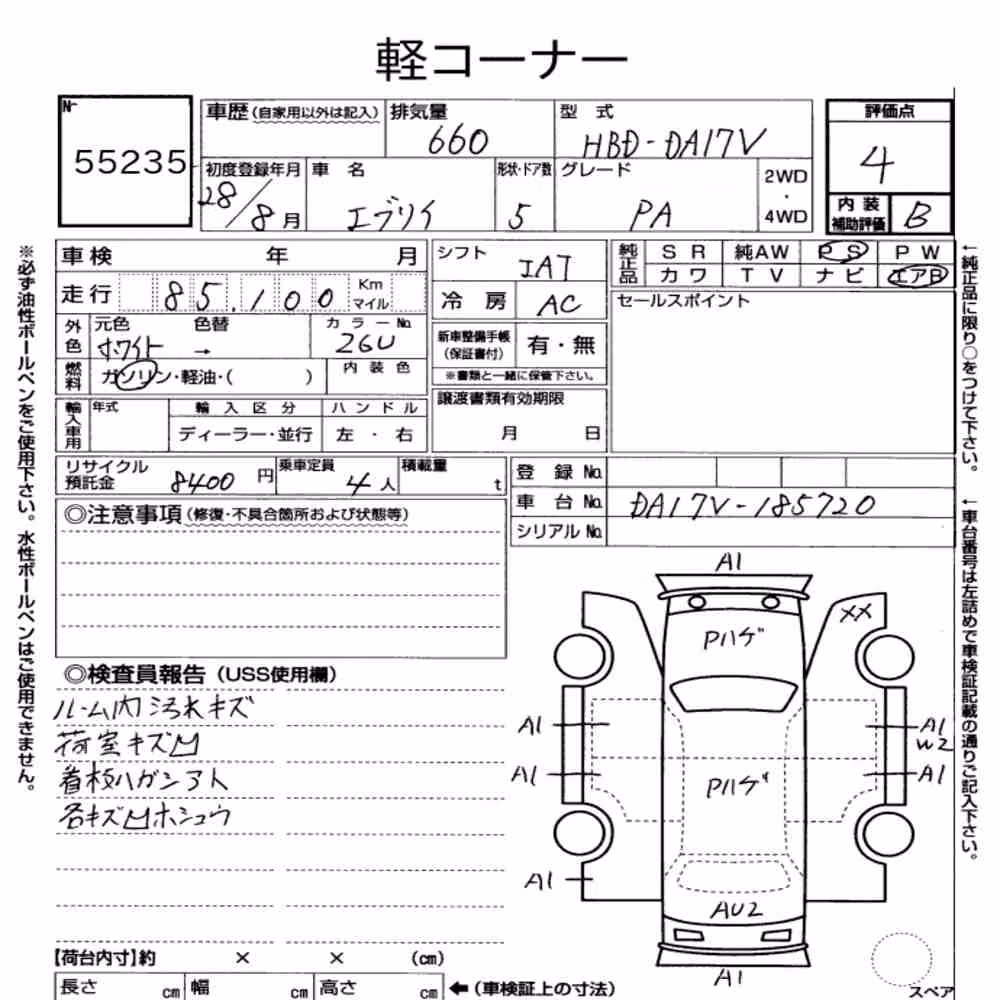 軽コーナー
№
55235
車歴(自家用以外は記入)
排気量
660
型 式
HBD-DA17V
評価点
4
初度登録年月
28/8月
車 名
エブリイ
形状・ドア数
5
グレード
PA
2WD
・
4WD
内 装
補助評価
B
車検 年 月
シフト
IAT
純正品
S R 純AW P S P W
カワ T V ナビ エアB
走行 85,100 Km
マイル
冷 房
AC
セールスポイント
外色
元色 色替
ホワイト →
カラー№
26U
新車整備手帳
(保証書付)
有・無
※書類と一緒に保管下さい。
燃料
ガソリン・軽油・( )
内 装 色
輸入車用
年式
輸 入 区 分
ハ ン ド ル
ディーラー・並行
左 ・ 右
譲渡書類有効期限
月 日
リサイクル
預託金
8400 円
乗車定員
4 人
積載量
t
登 録 №
車 台 №
DA17V-185720
シリアル №
◎注意事項(修復・不具合箇所および状態等)
◎検査員報告(USS使用欄)
ルーム内汚れキズ
荷室キズ凹
看板ハガシアト
各キズ凹ホシュウ
A1
Pハゲ
XX
A1
A1
W2
A1
A1
Pハゲ
A1
AU2
A1
スペア
【荷台内寸】約 × × (cm)
長さ cm 幅 cm 高さ cm
←(車検証上の寸法)
※必ず油性ボールペンをご使用下さい。水性ボールペンはご使用できません。
←純正品に限り○をつけて下さい。
←車台番号は左詰めで車検証記載の通りご記入下さい。